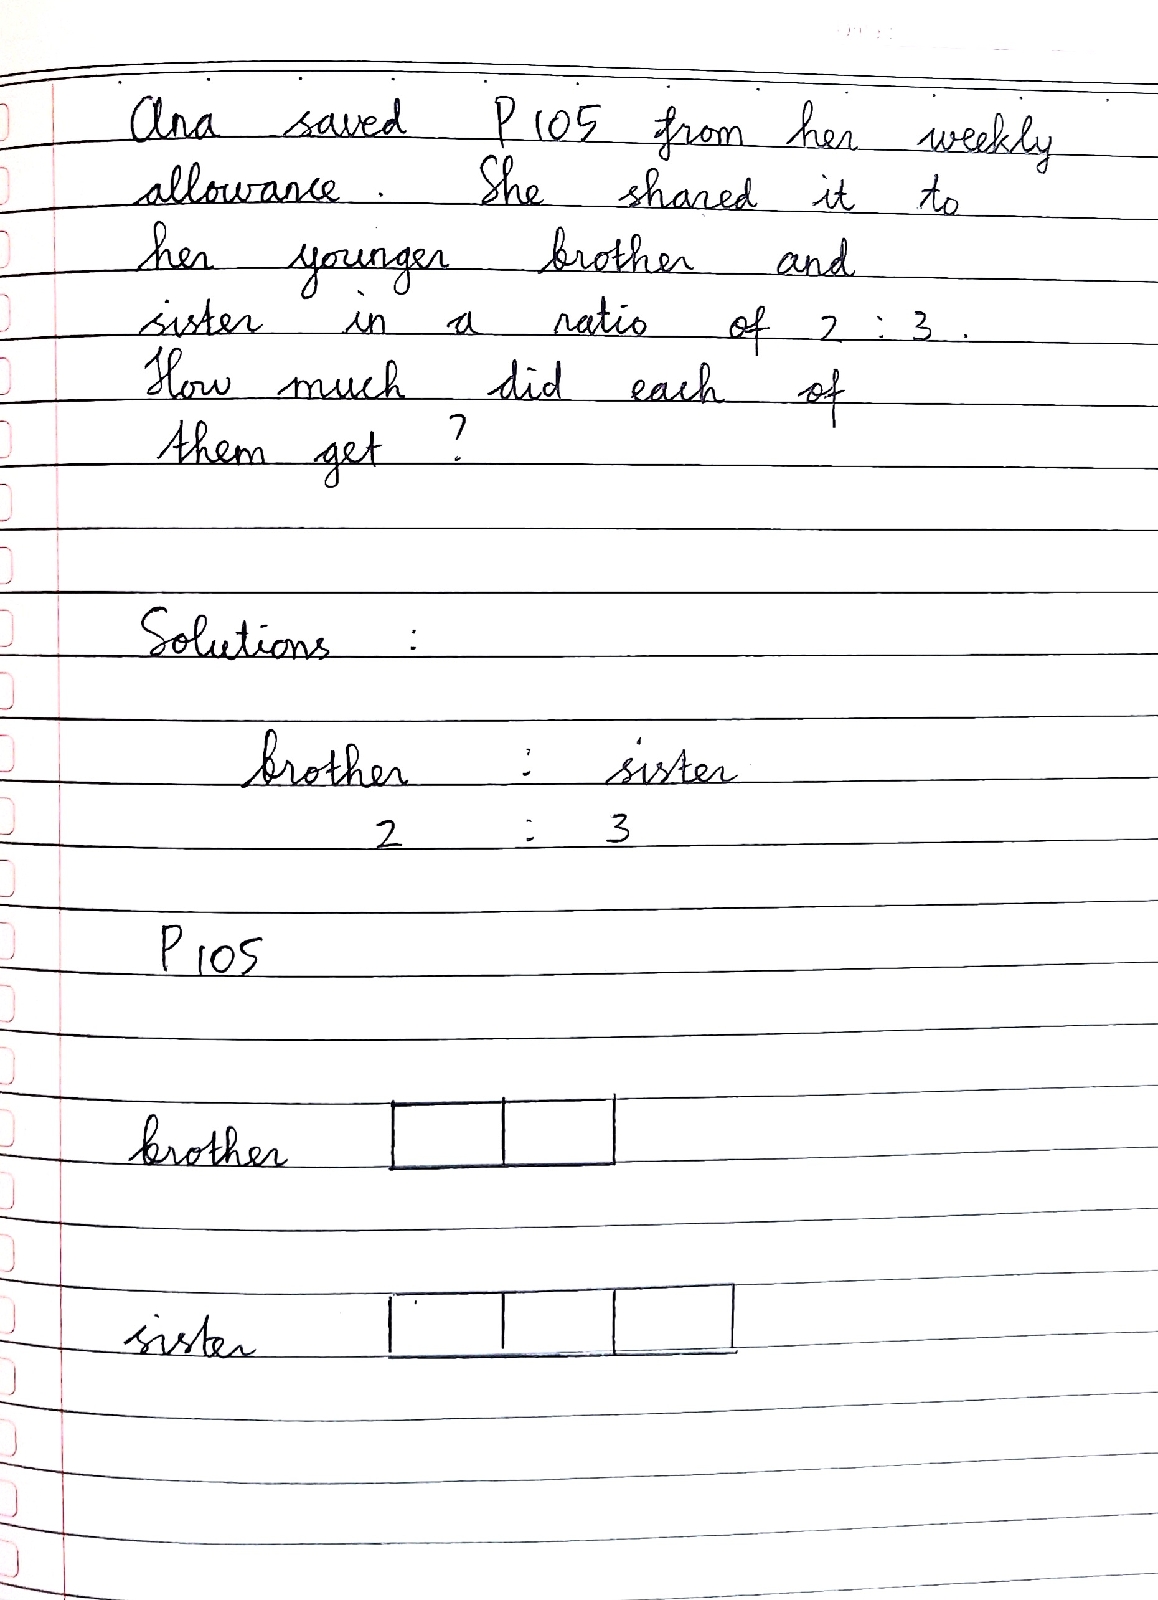 Ana saved P105 from her weekly
allowance. She shared it to
her younger brother and
sister in a ratio of 2 : 3.
How much did each of
them get ?
Solutions :
brother : sister
2 : 3
P105
brother
sister